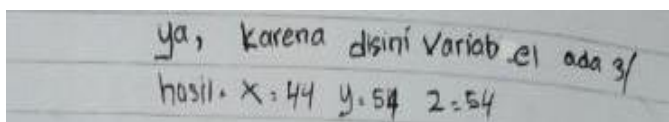 ya, karena disini Variabel ada 3/
hasil. x = 44 y = 54 z = 54